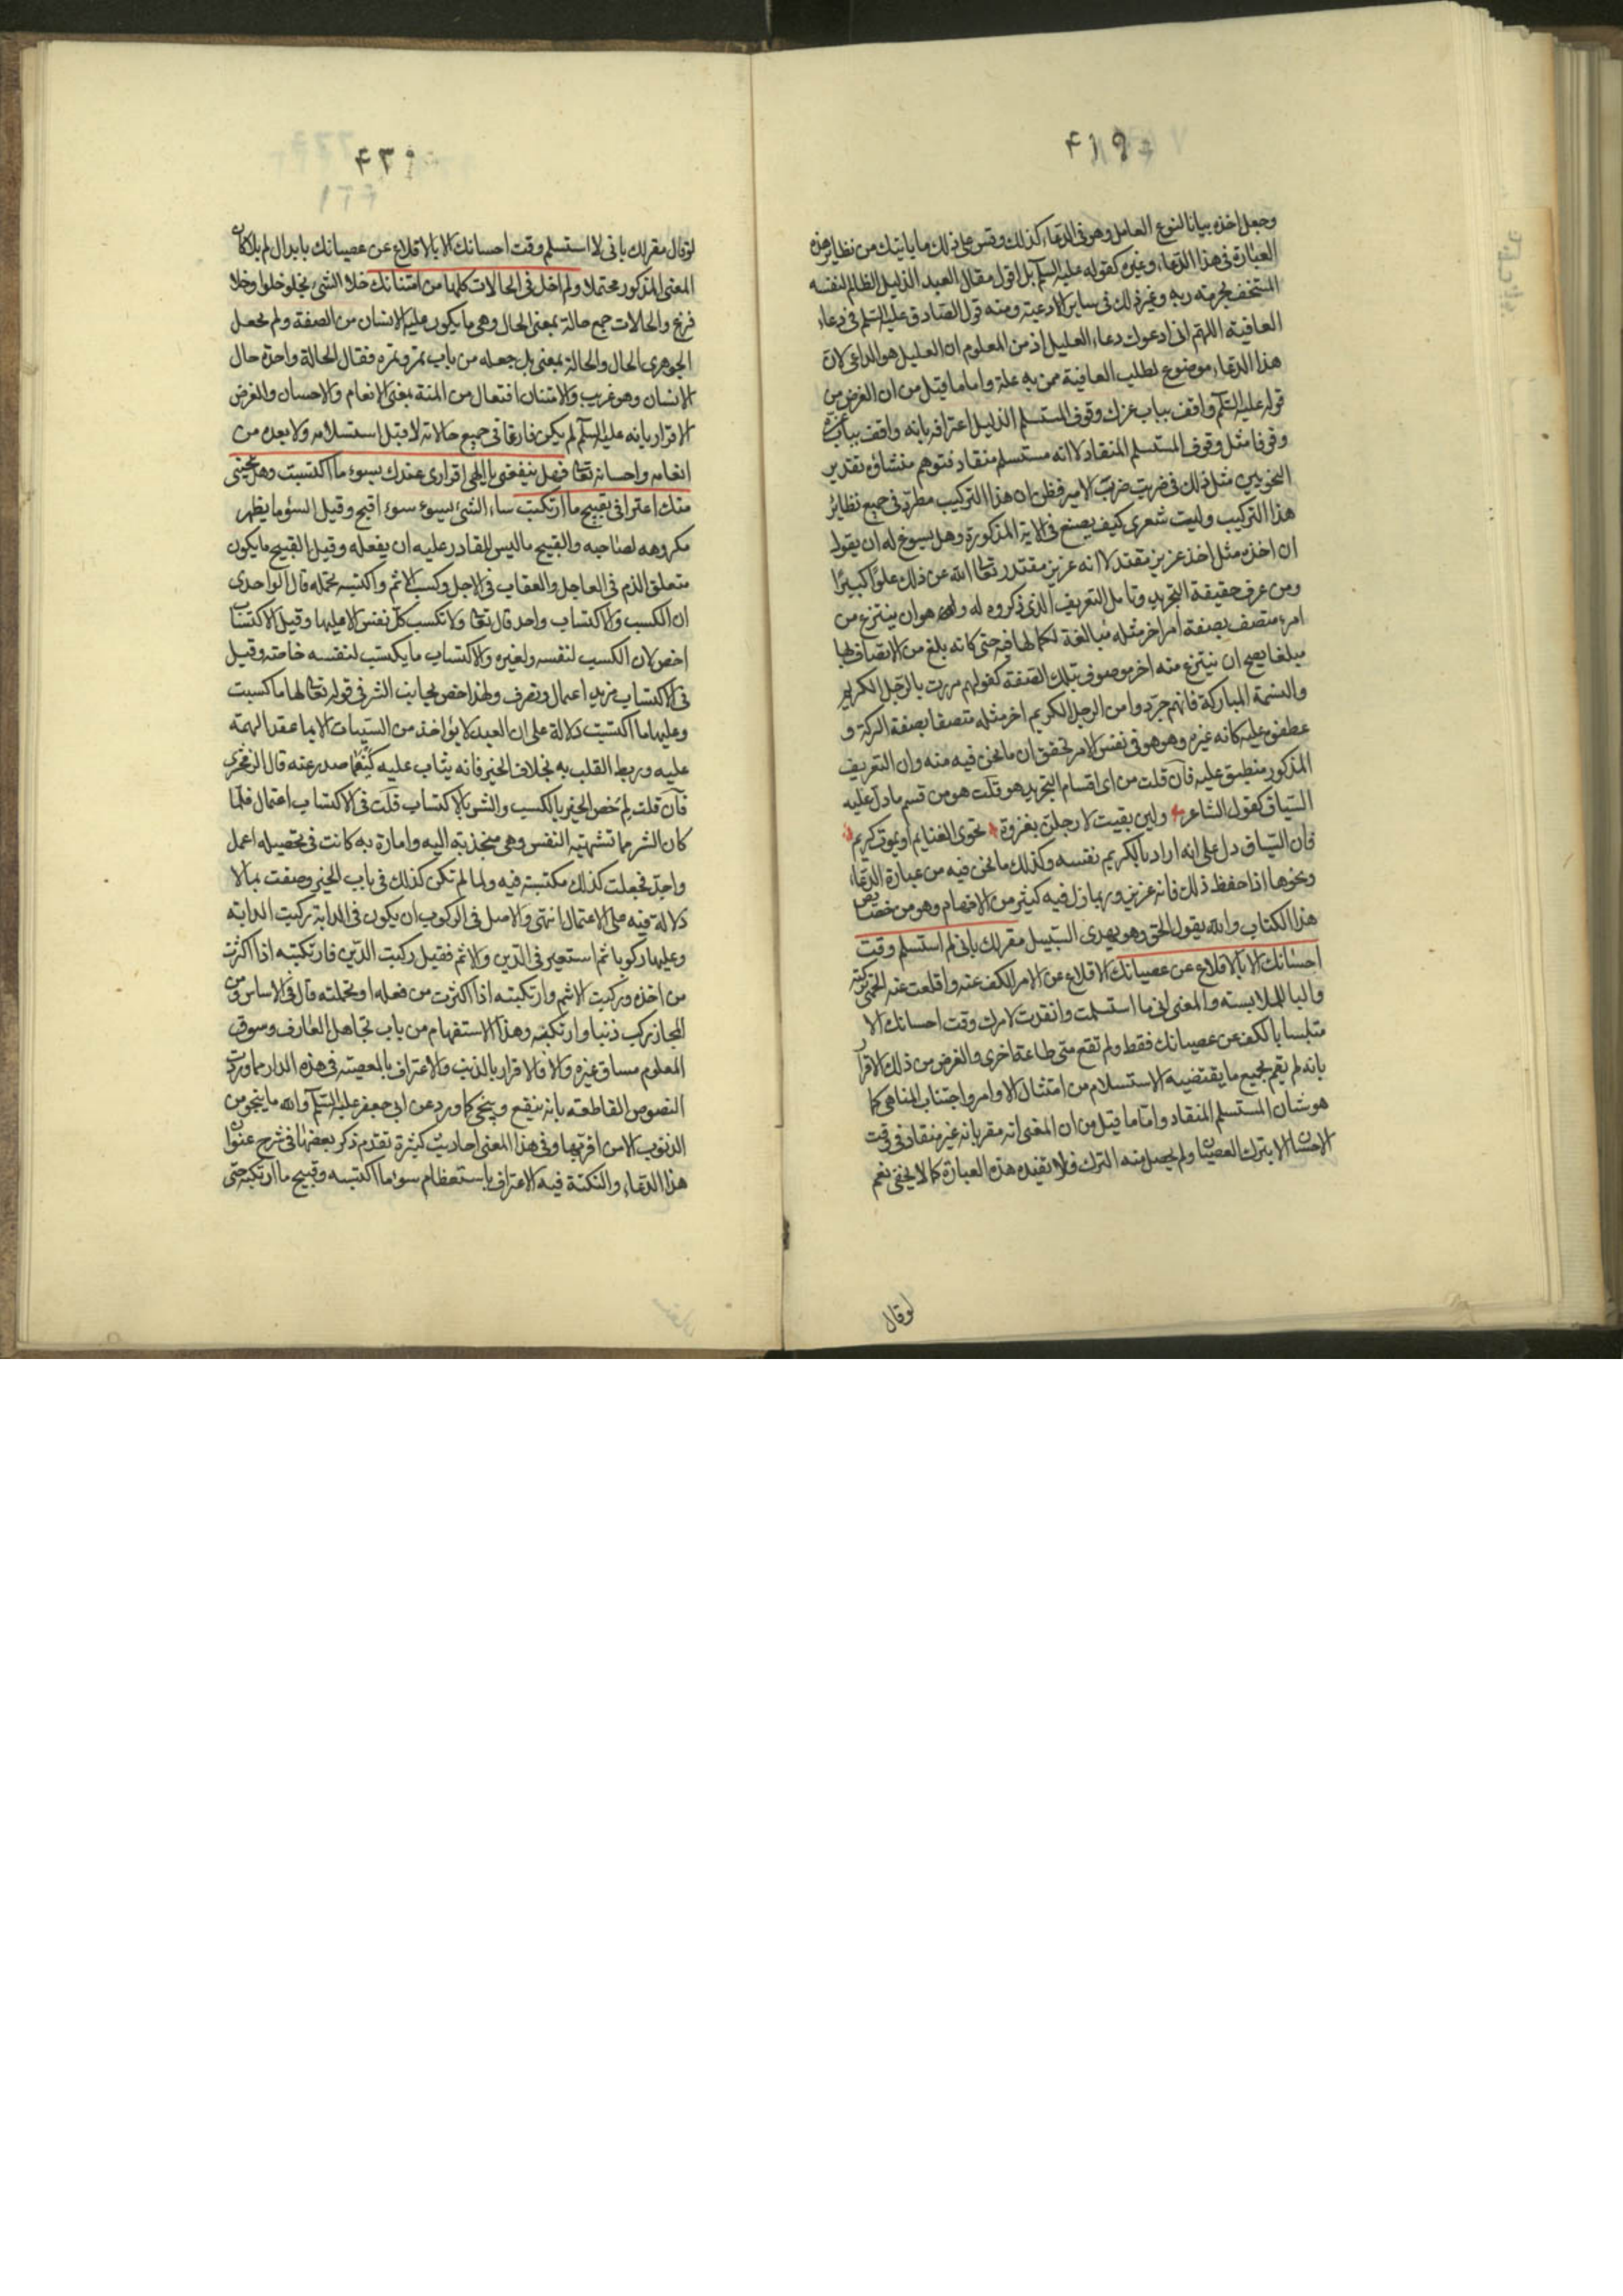 ۴۱۹
وجعل اخذه بيانا لنوع العامل وهو فى الدعاء كذلك وقس على ذلك ما ياتيك من نظاير هذه
العبارة فى هذا الدعاء وغيره كقوله عليه السلم بل اقول مقال العبد الذليل الظالم لنفسه
المستخف بحرمة ربه وغير ذلك فى ساير الادعية ومنه قول الصادق عليه السلم فى دعاء
العافية اللهم انى ادعوك دعاء العليل اذ من المعلوم ان العليل هو الداعى لان
هذا الدعاء موضوع لطلب العافية ممن به علة واما ما قيل من ان الغرض من
قوله عليه السلم واقف بباب عزك وقوف المستسلم الذليل اعترافه بانه واقف بباب عزه
وقوفا مثل وقوف المستسلم المنقاد لا انه مستسلم منقاد فتوهم منشاؤه تقدير
النحويين مثل ذلك فى ضربت ضرب الامير فظن ان هذا التركيب مطرد فى جميع نظائر
هذا التركيب وليت شعرى كيف يصنع فى الاية المذكورة وهل يسوغ له ان يقول
ان اخذه مثل اخذ عزيز مقتدر لا انه عزيز مقتدر تعالى الله عن ذلك علوا كبيرا
ومن عرف حقيقة التجريد وتامل التعريف الذى ذكروه له وهو ان ينتزع من
امر متصف بصفة امر اخر مثله مبالغة لكمالها فيه حتى كانه بلغ من الاتصاف بها
مبلغا يصح ان ينتزع منه اخر موصوف بتلك الصفة كقولهم مررت بالرجل الكريم
والنسمة المباركة فانهم جردوا من الرجل الكريم اخر مثله متصفا بصفة البركة و
عطفوه عليه كانه غيره وهو هو فى نفس الامر تحقق ان ما نحن فيه منه وان التعريف
المذكور منطبق عليه فان قلت من اى اقسام التجريد هو قلت هو من قسم ما دل عليه
السياق كقول الشاعر ولئن بقيت لارحلن بغزوة تحوى الغنايم او يموت كريم
فان السياق دل على انه اراد بالكريم نفسه وكذلك ما نحن فيه من عبارة الدعاء
ونحوها اذا احفظ ذلك فانه عزيز وربما زل فيه كثير من الافهام وهو من خصايص
هذا الكتاب والله يقول الحق وهو يهدى السبيل مقر لك بانى لم استسلم وقت
احسانك الا بالاقلاع عن عصيانك الاقلاع عن الامر الكف عنه واقلعت عنه الحمى تركته
والبا للملابسة والمعنى انى ما استسلمت وانقدت لامرك وقت احسانك الا
متلبسا بالكف عن عصيانك فقط ولم تقع منى طاعة اخرى والغرض من ذلك الاقرار
بانه لم يقم بجميع ما يقتضيه الاستسلام من امتثال الاوامر واجتناب المناهى كما
هو شان المستسلم المنقاد واما ما قيل من ان المعنى انه مقر بانه غير منقاد فى وقت
الاحسان الا بترك العصيان ولم يحصل منه الترك فلا تفيده هذه العبارة كما لا يخفى نعم
لو قال
۴۲۰
لو قال مقر لك بانى لا استسلم وقت احسانك الا بالاقلاع عن عصيانك بابدال لم بلا كان
المعنى المذكور محتملا ولم اخل فى الحالات كلها من امتنانك خلا الشى يخلو خلوا وخلا
فرغ والحالات جمع حالة بمعنى الحال وهى ما يكون عليه الانسان من الصفة ولم يجعل
الجوهرى الحال والحالة بمعنى بل جعله من باب تمر وتمره فقال الحالة واحدة حال
الانسان وهو غريب والامتنان افتعال من المنة بمعنى الانعام والاحسان والغرض
الاقرار بانه عليه السلم لم يكن فارغا فى جميع حالاته لا قبل استسلامه ولا بعده من
انعامه واحسانه تعالى فهل ينفعنى يا الهى اقرارى عندك بسوء ما اكتسبت وهل ينجينى
منك اعترافى بقبيح ما ارتكبت ساء الشى يسوء سوء اقبح وقيل السؤ ما يظهر
مكروهه لصاحبه والقبيح ما ليس للقادر عليه ان يفعله وقيل القبيح ما يكون
متعلق الذم فى العاجل والعقاب فى الاجل وكسب الاثم واكتسبه تحمله قال الواحدى
ان الكسب والاكتساب واحد قال تعالى ولا تكسب كل نفس الا عليها وقيل الاكتساب
اخص لان الكسب لنفسه ولغيره والاكتساب ما يكتسب لنفسه خاصة وقيل
فى الاكتساب مزيد اعتمال وتصرف ولهذا خص بجانب الشر فى قوله تعالى لها ما كسبت
وعليها ما اكتسبت دلالة على ان العبد لا يؤاخذ من السيئات الا بما عقد الهمة
عليه وربط القلب به بخلاف الخير فانه يثاب عليه كيفما صدر عنه قال الزمخشرى
فان قلت لم خص الخير بالكسب والشر بالاكتساب قلت فى الاكتساب اعتمال فلما
كان الشر مما تشتهيه النفس وهى منجذبة اليه وامارة به كانت فى تحصيله اعمل
واجد فجعلت كذلك مكتسبة فيه ولما لم تكن كذلك فى باب الخير وصفت بما لا
دلالة فيه على الاعتمال انتهى والاصل فى الركوب ان يكون فى الدابة ركبت الدابة
وعليها ركوبا ثم استعير فى الدين والاثم فقيل ركبت الدين وارتكبته اذا اكثرت
من اخذه وركبت الاثم وارتكبته اذا اكثرت من فعله او تحملته قال فى الاساس ومن
المجاز ركب ذنبا وارتكبه وهذا الاستفهام من باب تجاهل العارف وسوق
المعلوم مساق غيره والا فالاقرار بالذنب والاعتراف بالمعصية فى هذه الدار ما وردت
النصوص القاطعة بانه ينفع وينجى كما ورد عن ابى جعفر عليه السلم والله ما ينجو من
الذنوب الا من اقر بها وفى هذا المعنى احاديث كثيرة تقدم ذكر بعضها فى شرح عنوان
هذا الدعاء والنكتة فيه الاعتراف باستعظام سوء ما اكتسبه وقبيح ما ارتكبه حتى